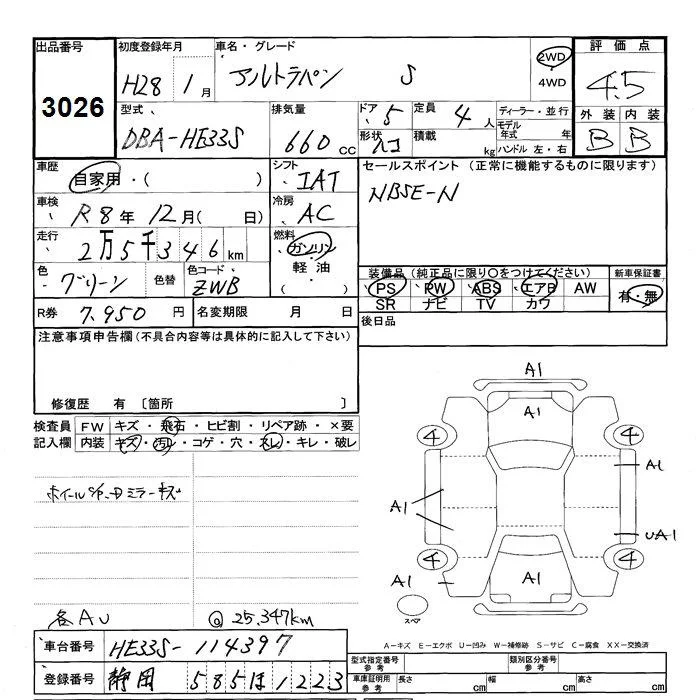 出品番号 3026
初度登録年月 H28 1月
車名・グレード アルトラパン S
2WD
4WD
評価点 4.5
外装 内装
B B
型式 DBA-HE33S
排気量 660cc
ドア 5
定員 4人
ディーラー・並行
形状
積載 kg
モデル年式 年
ハンドル 左・右
車歴 自家用・( )
シフト IAT
セールスポイント (正常に機能するものに限ります)
NBSE-N
車検 R8年12月( 日)
冷房 AC
走行 2万5千346km
燃料 ガソリン・軽油・( )
色 グリーン
色替
色コード ZWB
装備品(純正品に限り○をつけてください)
PS PW ABS エアB AW
SR ナビ TV カワ
新車保証書 有・無
R券 7,950円
名変期限 月 日
後日品
注意事項申告欄(不具合内容等は具体的に記入して下さい)
修復歴 有 〔箇所 〕
検査員記入欄
FW キズ・飛石・ヒビ割・リペア跡・×要
内装 キズ・汚レ・コゲ・穴・スレ・キレ・破レ
ホイールC/P、Dミラーキズ
各AU
@25,347km
A1
A1
4 4
A1
A1
UA1
4 4
A1
A1
スペア
A-キズ E-エクボ U-凹み W-補修跡 S-サビ C-腐食 XX-交換済
車台番号 HE33S-114397
登録番号 静岡 585 ほ 1223
型式指定番号 参考
類別区分番号 参考
車庫証明用 参考
長さ cm
幅 cm
高さ cm